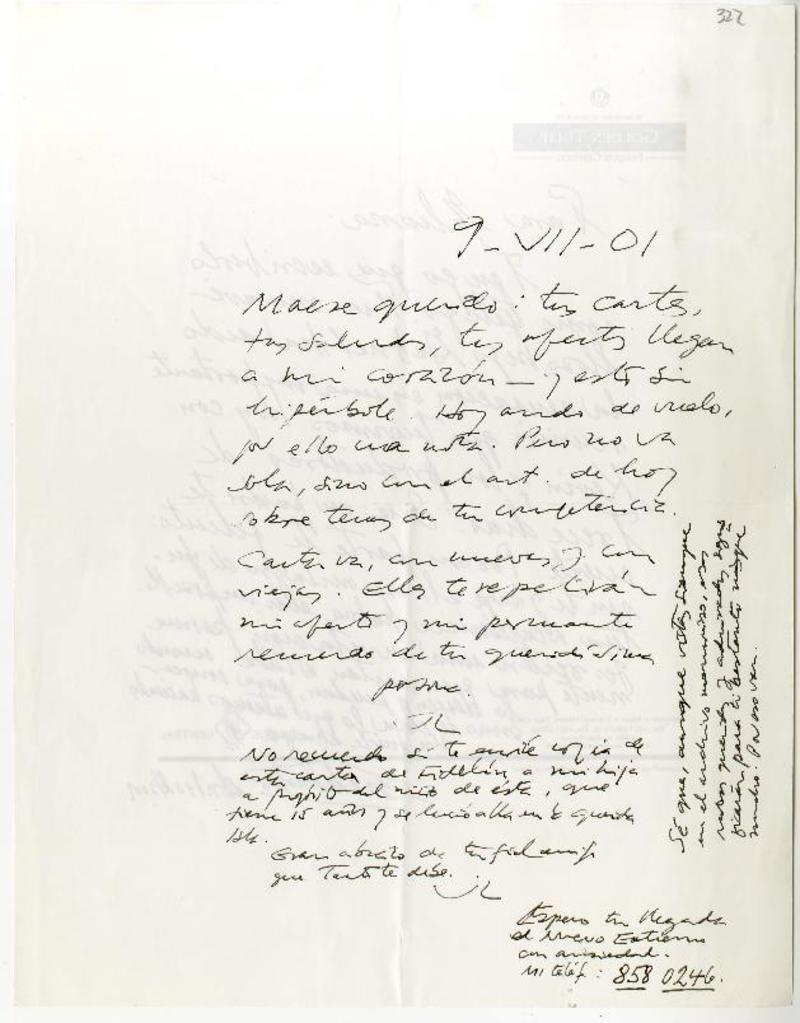 322
9-VII-01
Maese querido: tus cartas,
tus saludos, tus afectos llegan
a mi corazón – y esto sin
hipérbole. Hoy ando de vuelo,
por ello una nota. Pero no va
sola, sino con el art. de hoy
sobre temas de tu competencia.
Carta va, con nuevas y con
viejas. Ellas te repetirán
mi afecto y mi permanente
recuerdo de tu queridísima
persona.
No recuerdo si te envié copia de
esta carta de Fidelín a mi hija
a propósito del niño de ésta, que
tiene 15 años y se lució allá en la querida
Isla.
Gran abrazo de tu fiel amigo
que tanto te debe.
Espero tu llegada
al Nuevo Extremo
con ansiedad.
Mi teléf.: 858 0246.
Sé que, aunque estás siempre
en el archivo
queridos y admirados
para ti bastante más que
mucho. Por eso van.